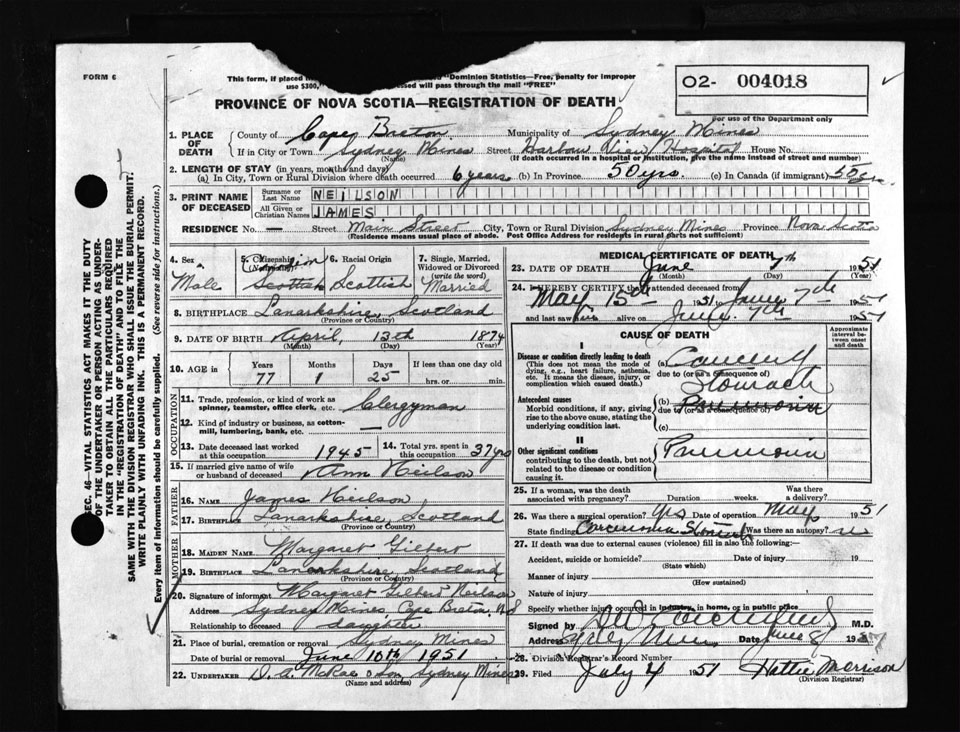 FORM 6
This form, if placed "Dominion Statistics—Free, penalty for improper
use $300," sed will pass through the mail "FREE"
PROVINCE OF NOVA SCOTIA—REGISTRATION OF DEATH
O2- 004018
For use of the Department only
1. PLACE OF DEATH { County of Cape Breton Municipality of Sydney Mines
If in City or Town Sydney Mines Street Harbour View Hospital House No.
(Name) (If death occurred in a hospital or institution, give the name instead of street and number)
2. LENGTH OF STAY (in years, months and days)
(a) In City, Town or Rural Division where death occurred 6 years (b) In Province 50 yrs. (c) In Canada (if immigrant) 50 yrs.
3. PRINT NAME OF DECEASED { Surname or Last Name NEILSON
All Given or Christian Names JAMES
RESIDENCE No. — Street Main Street City, Town or Rural Division Sydney Mines Province Nova Scotia
(Residence means usual place of abode. Post Office Address for residents in rural parts not sufficient)
4. Sex Male
5. Citizenship Scottish
6. Racial Origin Scottish
7. Single, Married, Widowed or Divorced (write the word) Married
8. BIRTHPLACE Lanarkshire, Scotland
(Province or Country)
9. DATE OF BIRTH April, 13th 1874
(Month) (Day) (Year)
10. AGE in { Years 77 Months 1 Days 25 If less than one day hrs. or min.
OCCUPATION
11. Trade, profession, or kind of work as spinner, teamster, office clerk, etc. Clergyman
12. Kind of industry or business, as cotton-mill, lumbering, bank, etc. —
13. Date deceased last worked at this occupation 1945 14. Total yrs. spent in this occupation 37 yrs
15. If married give name of wife or husband of deceased Ann Neilson
FATHER
16. NAME James Neilson
17. BIRTHPLACE Lanarkshire, Scotland
(Province or Country)
MOTHER
18. MAIDEN NAME Margaret Gilbert
19. BIRTHPLACE Lanarkshire, Scotland
(Province or Country)
20. Signature of informant Margaret Gilbert Neilson
Address Sydney Mines, Cape Breton, N.S
Relationship to deceased daughter
21. Place of burial, cremation or removal Sydney Mines
Date of burial or removal June 10th 1951
22. UNDERTAKER D. A. McRae & Son Sydney Mines
(Name and address)
MEDICAL CERTIFICATE OF DEATH
23. DATE OF DEATH June 7th 1951
(Month) (Day)
24. I HEREBY CERTIFY that I attended deceased from
May 15th 1951 June 7th 1951
and last saw him alive on June 7th 1951
CAUSE OF DEATH
Approximate interval between onset and death
I
Disease or condition directly leading to death
(This does not mean the mode of dying, e.g., heart failure, asthenia, etc. It means the disease, injury, or complication which caused death.)
(a)
due to (or as a consequence of)
Stomach
Antecedent causes
Morbid conditions, if any, giving rise to the above cause, stating the underlying condition last.
(b) Pneumonia
due to (or as a consequence of)
(c)
II
Other significant conditions
contributing to the death, but not related to the disease or condition causing it.
Pneumonia
25. If a woman, was the death associated with pregnancy? Duration weeks. Was there a delivery?
26. Was there a surgical operation? yes Date of operation May 1951
State findings Carcinoma Stomach Was there an autopsy? no
27. If death was due to external causes (violence) fill in also the following:—
Accident, suicide or homicide? Date of injury 19
(State which)
Manner of injury
(How sustained)
Nature of injury
Specify whether injury occurred in industry, in home, or in public place
Signed by M.D.
Address Date June 8 19
28. Division Registrar's Record Number
29. Filed July 4 1951 Hattie Morrison
(Division Registrar)
SEC. 46—VITAL STATISTICS ACT MAKES IT THE DUTY
OF THE UNDERTAKER OR PERSON ACTING AS UNDER-
TAKER TO OBTAIN ALL THE PARTICULARS REQUIRED
IN THE "REGISTRATION OF DEATH" AND TO FILE THE
SAME WITH THE DIVISION REGISTRAR WHO SHALL ISSUE THE BURIAL PERMIT.
WRITE PLAINLY WITH UNFADING INK. THIS IS A PERMANENT RECORD.
Every item of information should be carefully supplied. (See reverse side for instructions.)